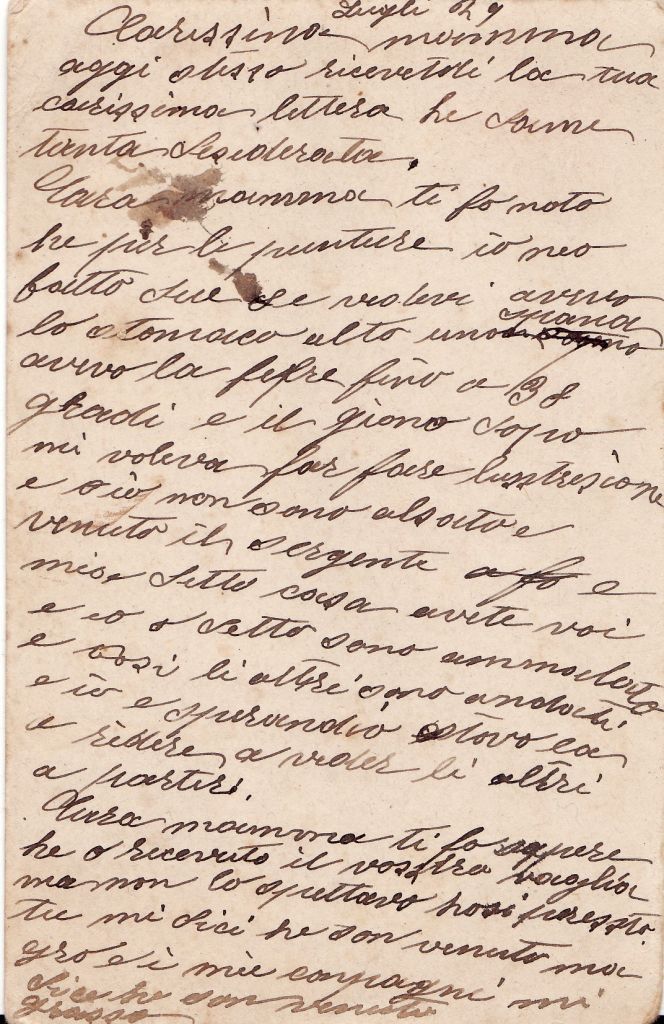 Lugli 29
Carissina mamma
aggi stesso ricevetdi la tua
carissima lettera he
tanta desiderata.
Cara mamma ti fo noto
he per le punture io neo
fatto due se vedevi avevo
lo stomaco alto uno spana
avevo la fefre fino a 38
gradi e il giono dopo
mi voleva far fare listrezione
e dio non sono alsato e
venuto il sergente a fo e
mise detto cosa avete voi
e io o detto sono ammalato
e cosi li altri sono andati
e io e sperandio stavo la
a ridere a veder li altri
a partiri.
Cara mamma ti fo sapere
he o ricevuto il vostro vaglia
ma non lo spettavo hosi presto.
tu mi dici he son venuto ma
gro e i mie conpagni mi
dice he son venuto
grasso